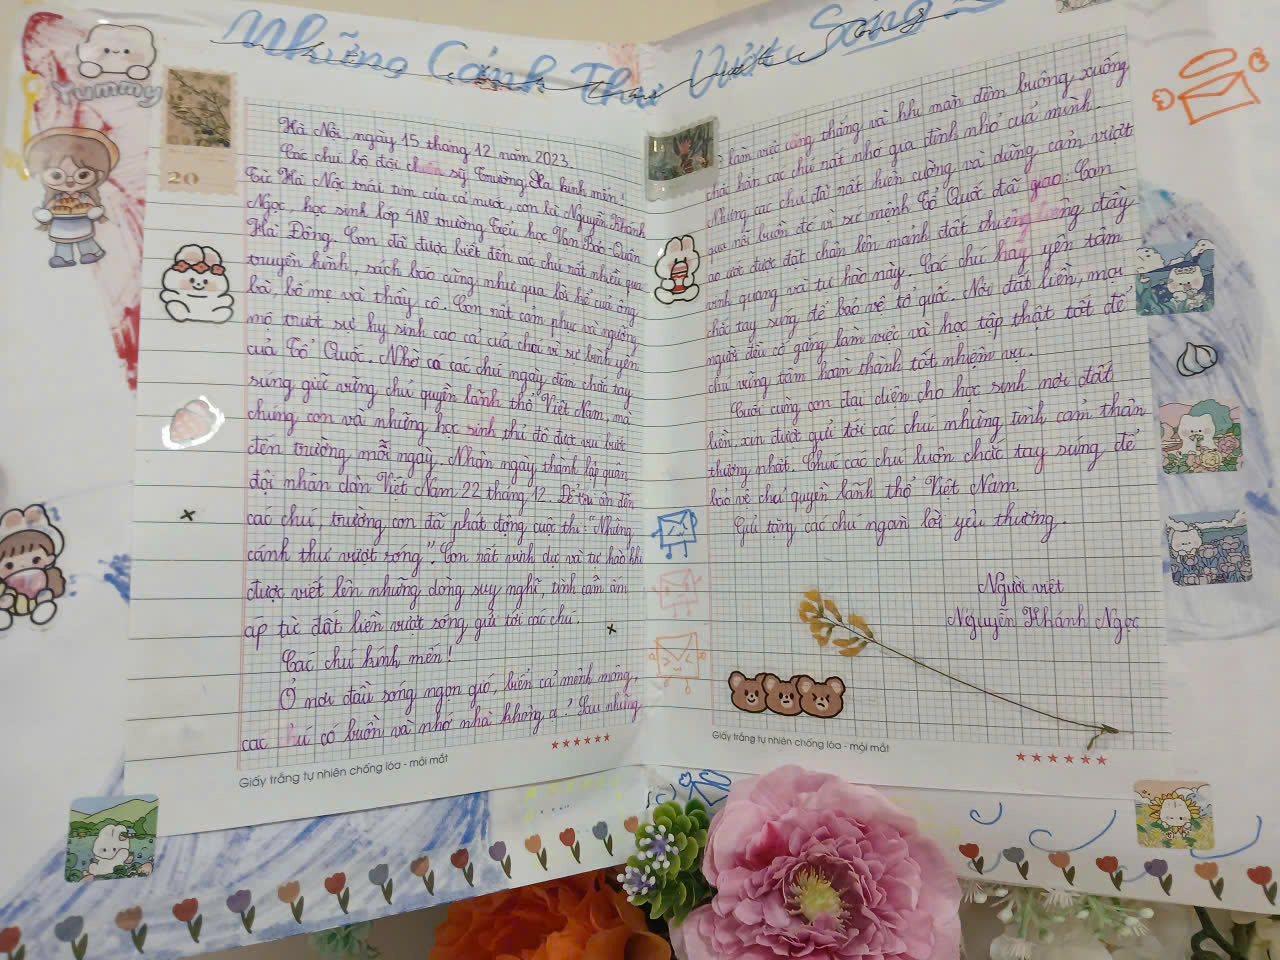 Những Cánh Thư Vượt Sóng
Yummy
20
Hà Nội ngày 15 tháng 12 năm 2023
Các chú bộ đội chiến sỹ Trường Sa kính mến!
Từ Hà Nội trái tim của cả nước, con là Nguyễn Khánh
Ngọc, học sinh lớp 4A8 trường Tiểu học Văn Bảo - Quận
Hà Đông. Con đã được biết đến các chú rất nhiều qua
truyền hình, sách báo cũng như qua lời kể của ông
bà, bố mẹ và thầy cô. Con rất cảm phục và ngưỡng
mộ trướt sự hy sinh cao cả của cha vì sự bình yên
của Tổ Quốc. Nhờ có các chú ngày đêm chắc tay
súng giữ vững chủ quyền lãnh thổ Việt Nam, mà
chúng con và những học sinh thủ đô được vui bước
đến trường mỗi ngày. Nhân ngày thành lập quân
đội nhân dân Việt Nam 22 tháng 12. Để tri ân đến
các chú, trường con đã phát động cuộc thi: "Những
cánh thư vượt sóng". Con rất vinh dự và tự hào khi
được viết lên những dòng suy nghĩ, tình cảm ấm
áp từ đất liền vượt sóng gửi tới các chú.
Các chú kính mến!
Ở nơi đầu sóng ngọn gió, biển cả mênh mông,
các chú có buồn và nhớ nhà không ạ? Sau những
giờ làm việc căng thẳng và khi màn đêm buông xuống
chắc hẳn các chú rất nhớ gia đình nhỏ của mình.
Nhưng các chú đã rất kiên cường và dũng cảm vượt
qua nỗi buồn để vì sứ mệnh Tổ Quốc đã giao. Con
ao ước được đặt chân lên mảnh đất thiêng liêng đầy
vinh quang và tự hào này. Các chú hãy yên tâm
chắc tay súng để bảo vệ tổ quốc. Nơi đất liền, mọi
người đều cố gắng làm việc và học tập thật tốt để
chú vững tâm hoàn thành tốt nhiệm vụ.
Cuối cùng con đại diện cho học sinh nơi đất
liền, xin được gửi tới các chú những tình cảm thân
thương nhất. Chúc các chú luôn chắc tay súng để
bảo vệ chủ quyền lãnh thổ Việt Nam.
Gửi tặng các chú ngàn lời yêu thương.
Người viết
Nguyễn Khánh Ngọc
Giấy trắng tự nhiên chống lóa - mỏi mắt
Giấy trắng tự nhiên chống lóa - mỏi mắt